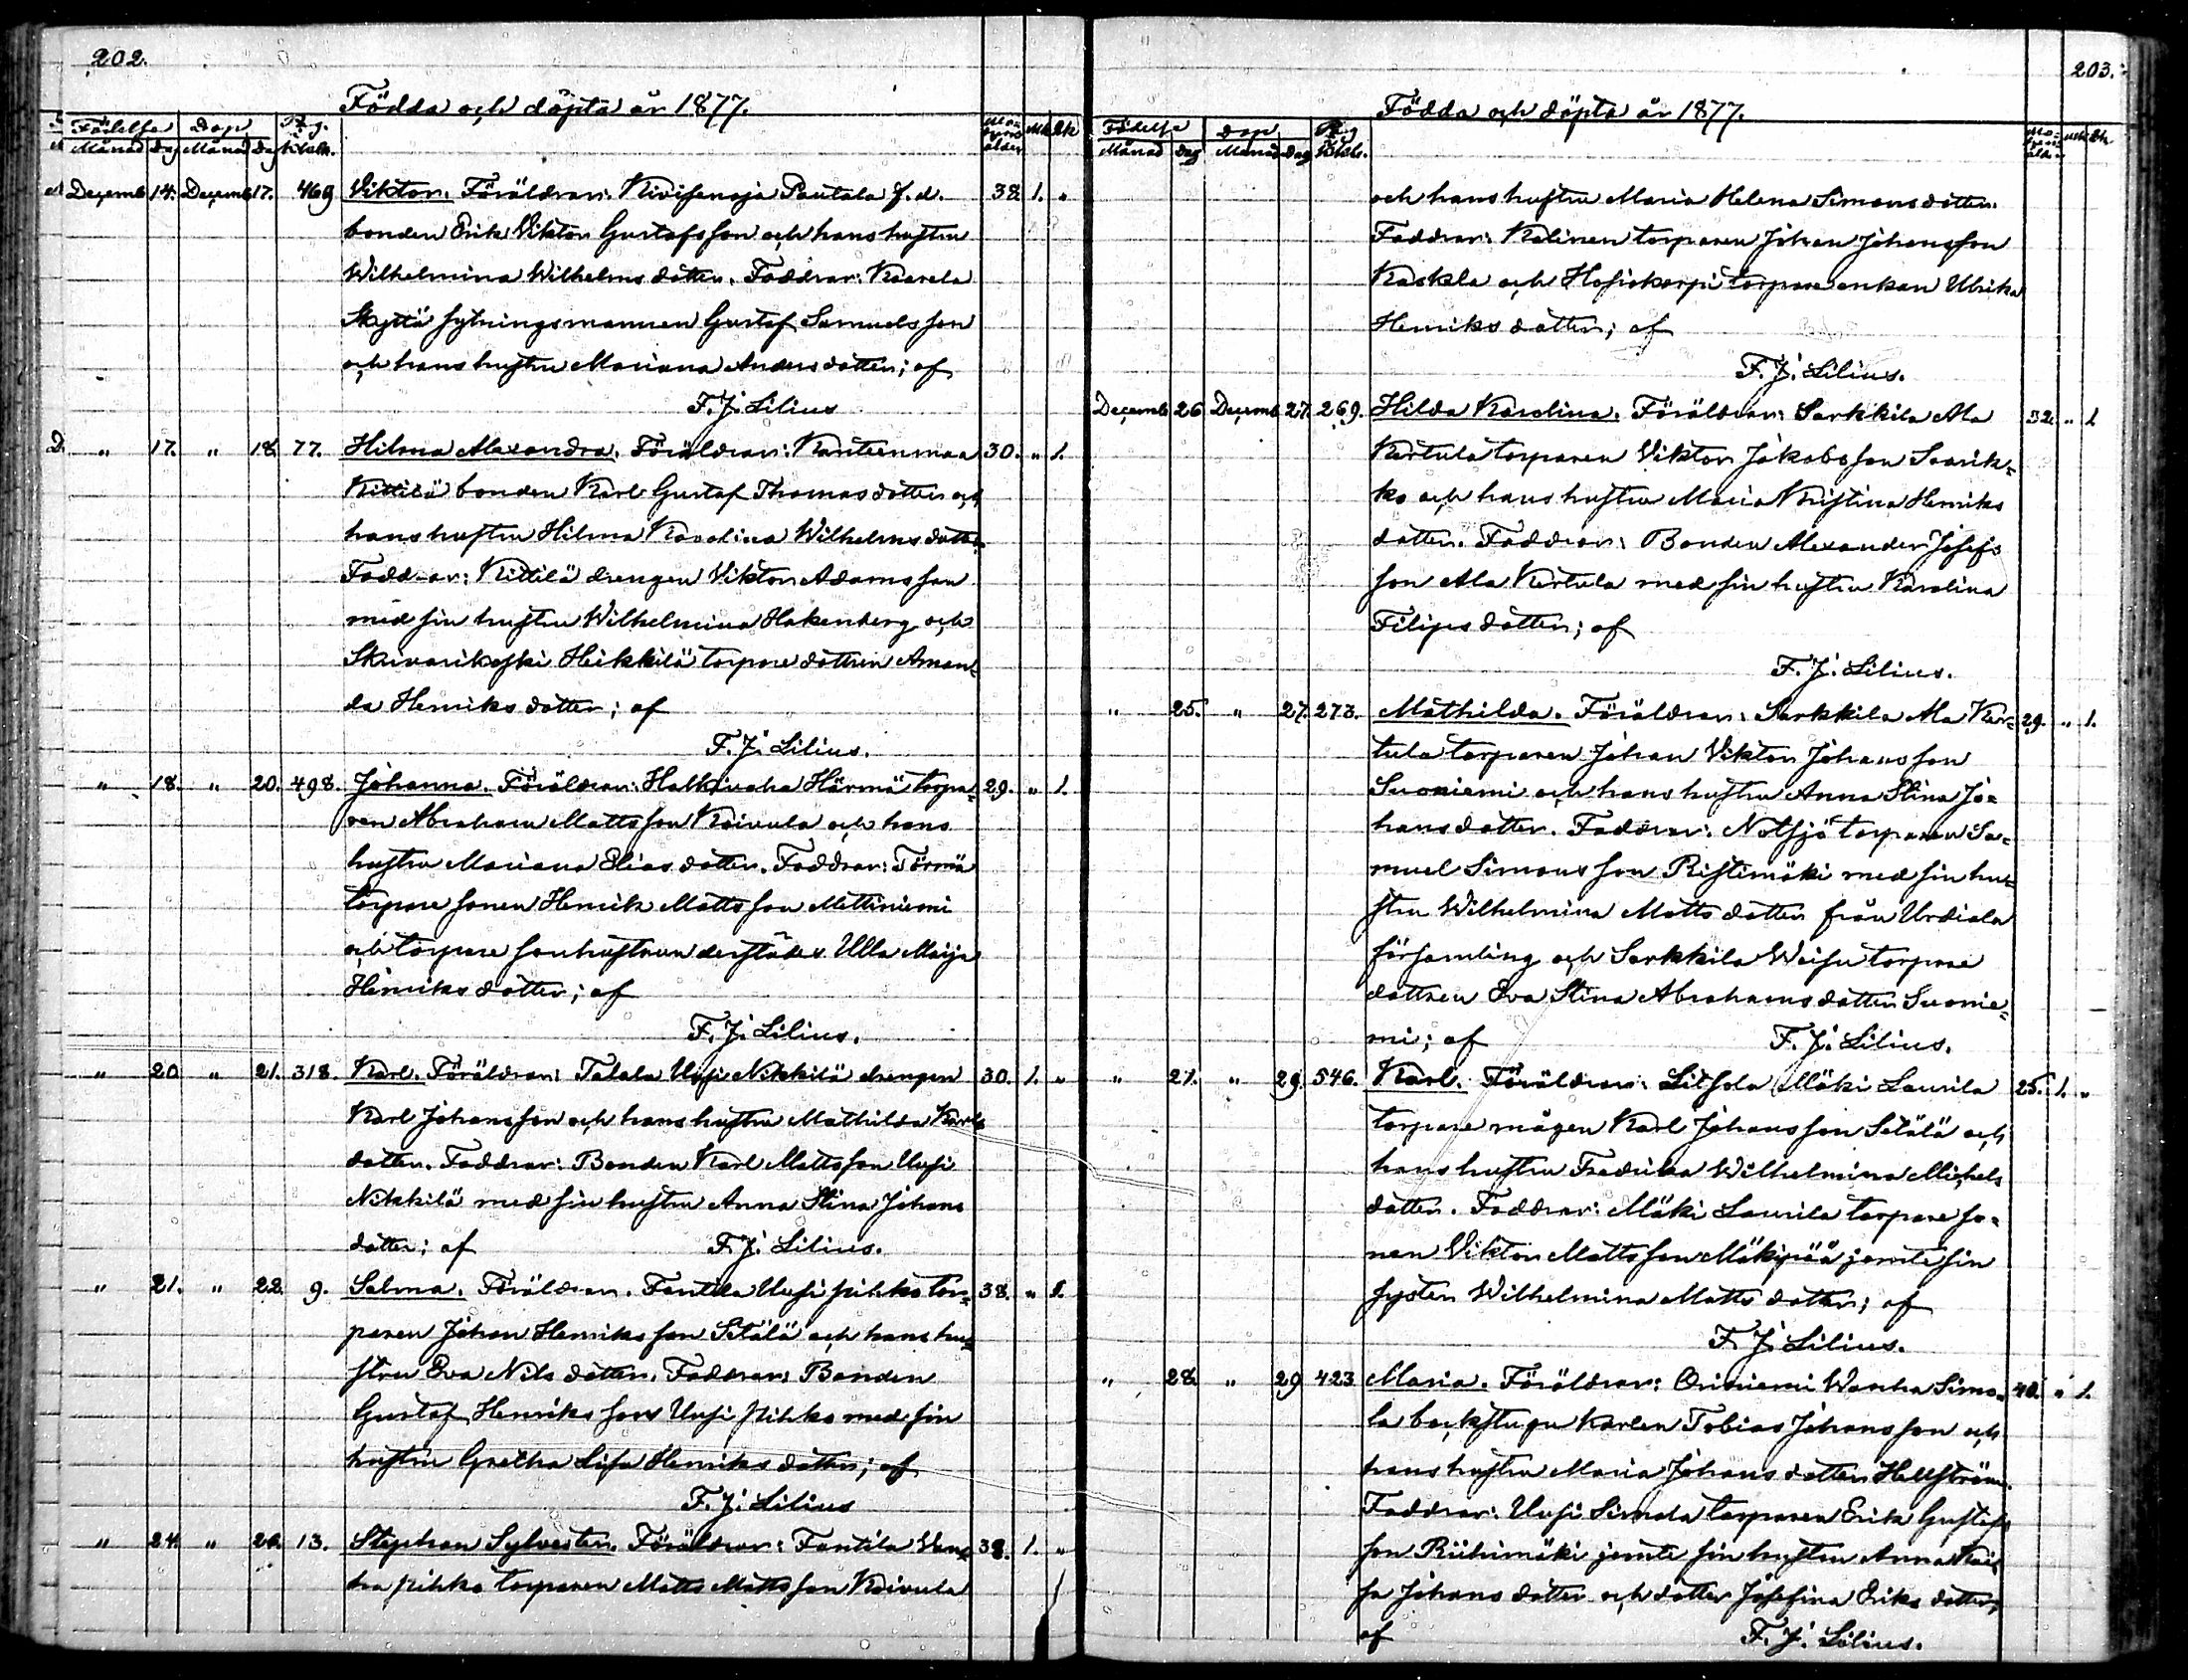 202.
Födda och döpta år 1877.
Födelse Dop Pag. i Kb. Moderns ålder Mk Qk
Månad Dag Månad Dag
Decemb 14. Decemb 17. 469 Viktor. Föräldrar: Kivisenoja Pautala f.d. 38. 1. "
bonden Erik Viktor Gustafsson och hans hustru
Wilhelmina Wilhelmsdotter. Faddrar: Kaarela
Skyttä sytningsmannen Gustaf Samuelsson
och hans hustru Mariana Andersdotter; af
F. J. Lilius
" 17. " 18. 77. Hilma Alexandra. Föräldrar: Kanteenmaa 30. " 1.
Kittilä bonden Karl Gustaf Thomasdotter och
hans hustru Hilma Karolina Wilhelmsdotter.
Faddrar: Kittilä drengen Viktor Adamsson
med sin hustru Wilhelmina Hakenberg och
Heikkilä torparedottren Aman-
da Henriksdotter; af
F. J. Lilius.
" 18. " 20. 498. Johanna. Föräldrar: Halkivaha Härmä torpa- 29. " 1.
ren Abraham Mattsson Koivula och hans
hustru Mariana Eliasdotter. Faddrar: Törmä
torparesonen Henrik Mattsson Mettiniemi
och torparesonhustrun derstädes Ulla Maija
Henriksdotter; af
F. J. Lilius.
" 20 " 21. 318. Karl. Föräldrar: Talala Uusi Nikkilä drengen 30. 1. "
Karl Johansson och hans hustru Mathilda Karls
dotter. Faddrar: Bonden Karl Mattsson Uusi
Nikkilä med sin hustru Anna Stina Johans
dotter; af F. J. Lilius.
" 21. " 22. 9. Selma. Föräldrar. Fantila Uusi pihko tor- 38. " 1.
paren Johan Henriksson Setälä och hans hu-
stru Eva Nilsdotter. Faddrar: Bonden
Gustaf Henriksson Uusi pihko med sin
hustru Gretha Lisa Henriksdotter; af
F. J. Lilius
" 24. " 26. 13. Stephan Sylvester. Föräldrar: Fantila Van- 38. 1. "
ha pihko torparen Matts Mattsson Koivula
203.
Födda och döpta år 1877.
Födelse Dop Pag. i Kb. Moderns ålder Mk Qk
Månad Dag Månad Dag
och hans hustru Maria Helena Simonsdotter.
Faddrar: Kalinen torparen Johan Johansson
Kaskela och torpareenkan Ulrika
Henriksdotter; af
F. J. Lilius.
Decemb 26 Decemb 27. 269. Hilda Karolina. Föräldrar: Sarkkila Ala 32. " 1
Kertula torparen Viktor Jakobsson Saarik-
ko och hans hustru Maria Kristina Henriks
dotter. Faddrar: Bonden Alexander Josefs
son Ala Kertula med sin hustru Karolina
Filipsdotter; af
F. J. Lilius.
" 25. " 27. 273. Mathilda. Föräldrar: Sarkkila Ala Ker- 29. " 1.
tula torparen Johan Viktor Johansson
Suoniemi och hans hustru Anna Stina Jo-
hansdotter. Faddrar: Notsjö torparen Sa-
muel Simonsson Ristimäki med sin hu-
stru Wilhelmina Mattsdotter från Urdiala
församling och Sarkkila torpare
dottren Eva Stina Abrahamsdotter Suonie-
mi; af F. J. Lilius.
" 27. " 29. 546. Karl. Föräldrar: Mäki Laurila 25. 1. "
torparemågen Karl Johansson Setälä och
hans hustru Fredrika Wilhelmina Michels
dotter. Faddrar: Mäki Laurila torpareso-
nen Viktor Mattsson Mäkipää jemte sin
syster Wilhelmina Mattsdotter; af
F. J. Lilius.
" 28. " 29 423 Maria. Föräldrar: Oriniemi Wanha Simo- 40. " 1.
la backstugukarlen Tobias Johansson och
hans hustru Maria Johansdotter Hellström.
Faddrar: Uusi Simola torparen Erik Gustafs
son Riihimäki jemte sin hustru Anna Kai-
sa Johansdotter och dotter Josefina Eriksdotter;
af F. J. Lilius.